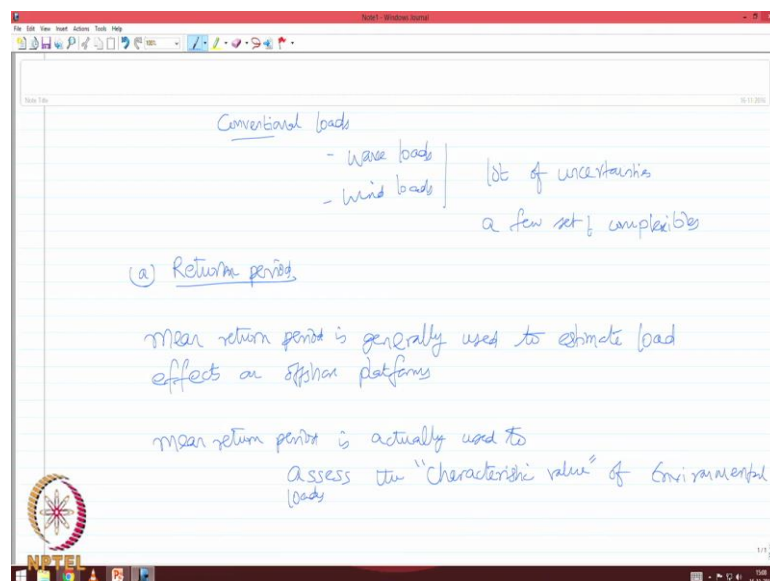 Note1 - Windows Journal
File Edit View Insert Actions Tools Help
Note Title
16-11-2016
Conventional loads
- wave loads
- wind loads
lot of uncertainties
a few set of complexities
(a) Return period
Mean return period is generally used to estimate load
effects on offshore platforms
Mean return period is actually used to
assess the "characteristic value" of Environmental
loads
NPTEL
1/1